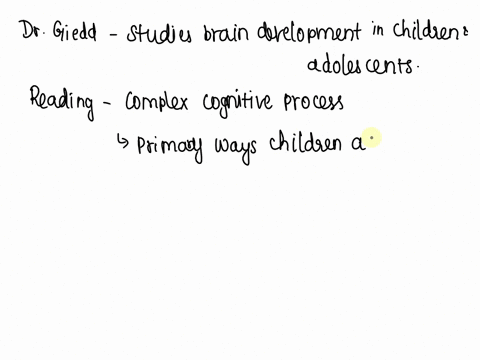 Dr. Giedd - Studies brain development in children &
adolescents.
Reading - Complex cognitive process
↳ Primary ways children a